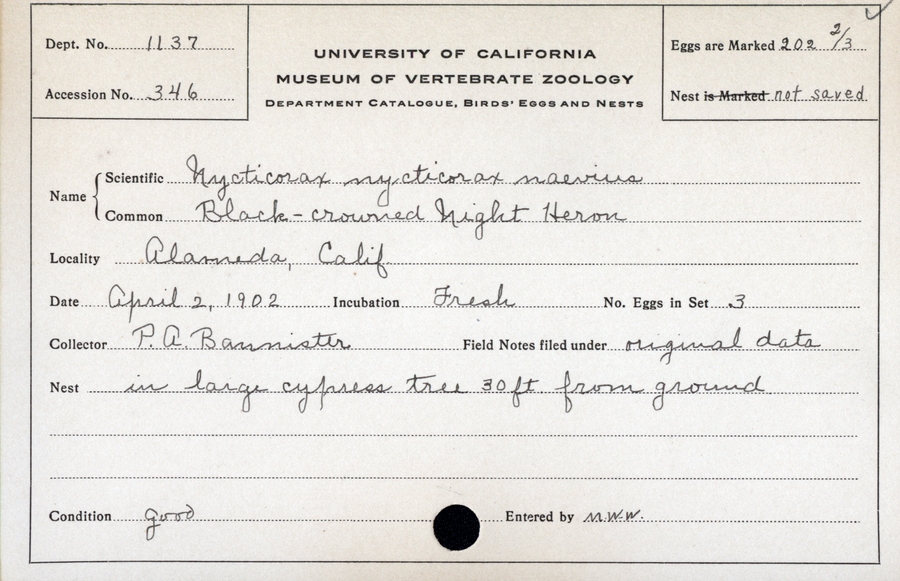 Dept. No. 1137
Accession No. 346
UNIVERSITY OF CALIFORNIA
MUSEUM OF VERTEBRATE ZOOLOGY
DEPARTMENT CATALOGUE, BIRDS' EGGS AND NESTS
Eggs are Marked 202 2/3
Nest is Marked not saved
Name
Scientific Nycticorax nycticorax naevius
Common Black-crowned Night Heron
Locality Alameda, Calif
Date April 2, 1902 Incubation Fresh No. Eggs in Set 3
Collector P. A. Bannister Field Notes filed under original data
Nest in large cypress tree 30 ft. from ground
Condition good Entered by M.W.W.